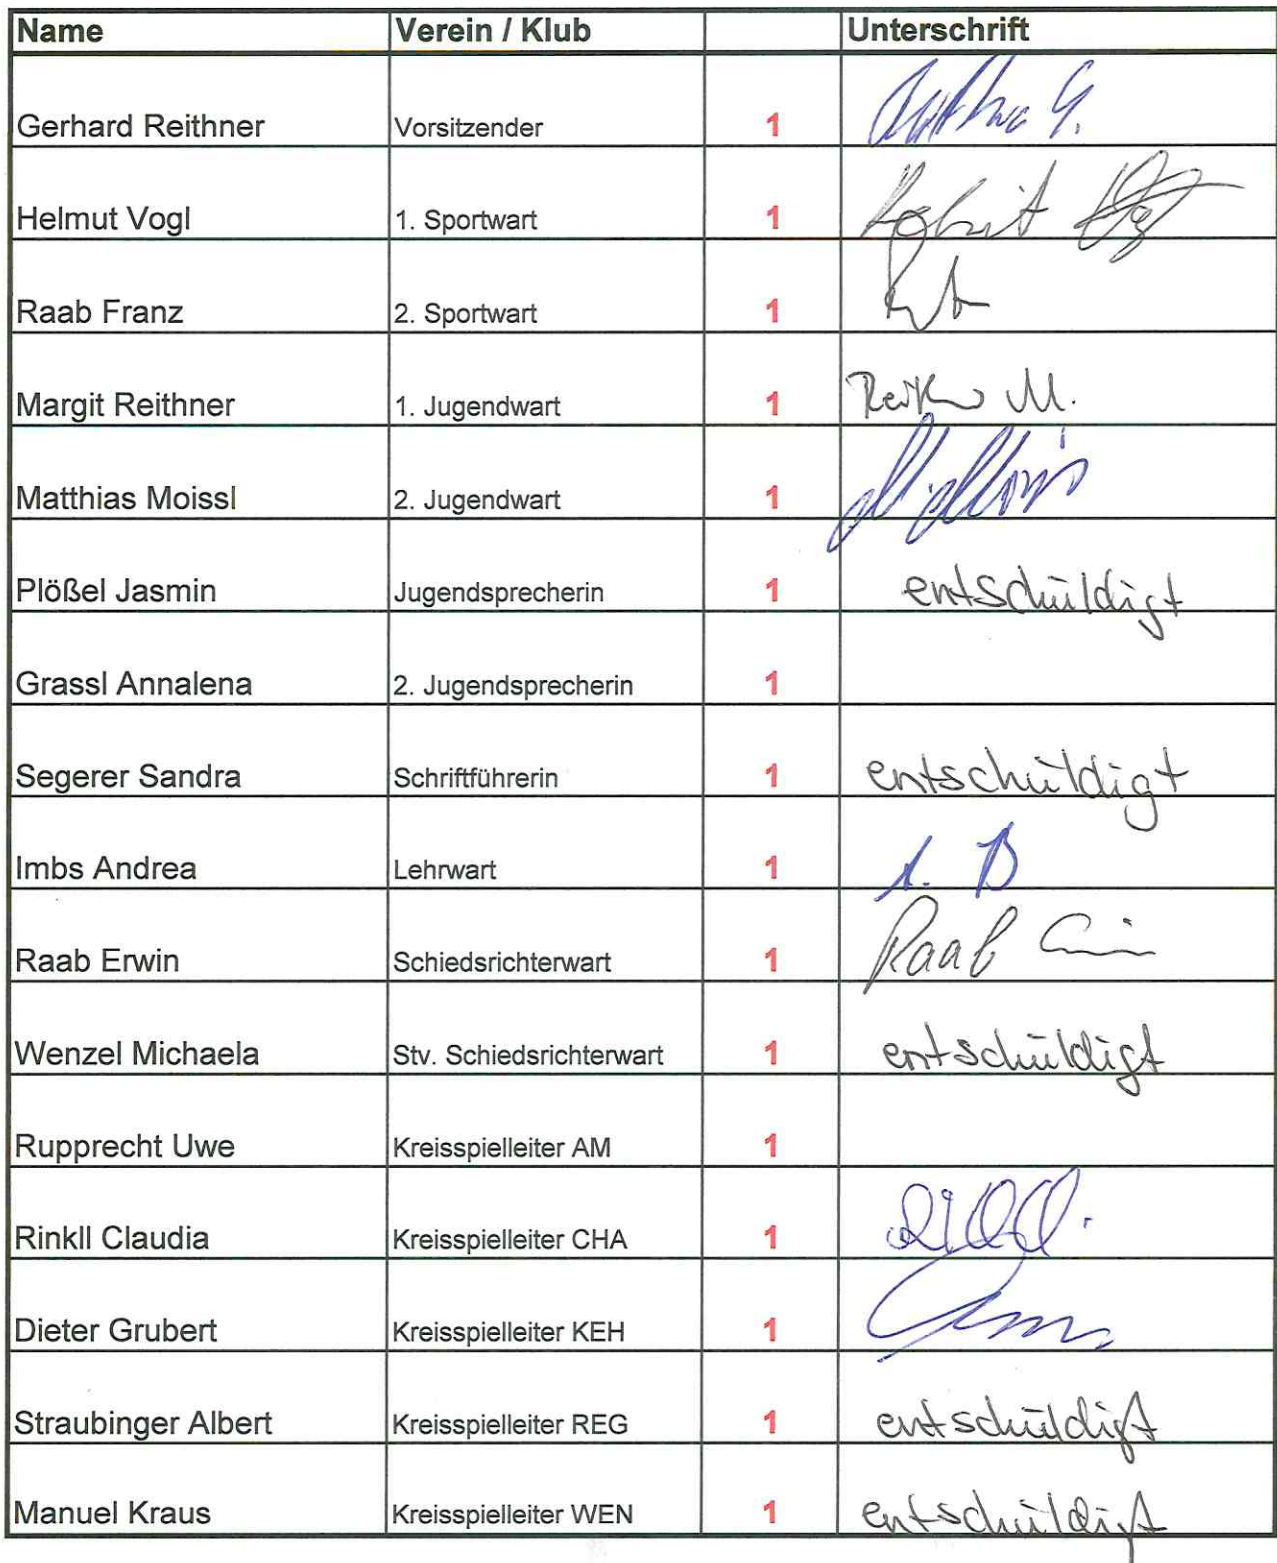 Name Verein / Klub Unterschrift
Gerhard Reithner Vorsitzender 1
Helmut Vogl 1. Sportwart 1
Raab Franz 2. Sportwart 1
Margit Reithner 1. Jugendwart 1 M.
Matthias Moissl 2. Jugendwart 1
Plößel Jasmin Jugendsprecherin 1 entschuldigt
Grassl Annalena 2. Jugendsprecherin 1
Segerer Sandra Schriftführerin 1 entschuldigt
Imbs Andrea Lehrwart 1
Raab Erwin Schiedsrichterwart 1 Raab
Wenzel Michaela Stv. Schiedsrichterwart 1 entschuldigt
Rupprecht Uwe Kreisspielleiter AM 1
Rinkll Claudia Kreisspielleiter CHA 1
Dieter Grubert Kreisspielleiter KEH 1
Straubinger Albert Kreisspielleiter REG 1 entschuldigt
Manuel Kraus Kreisspielleiter WEN 1 entschuldigt